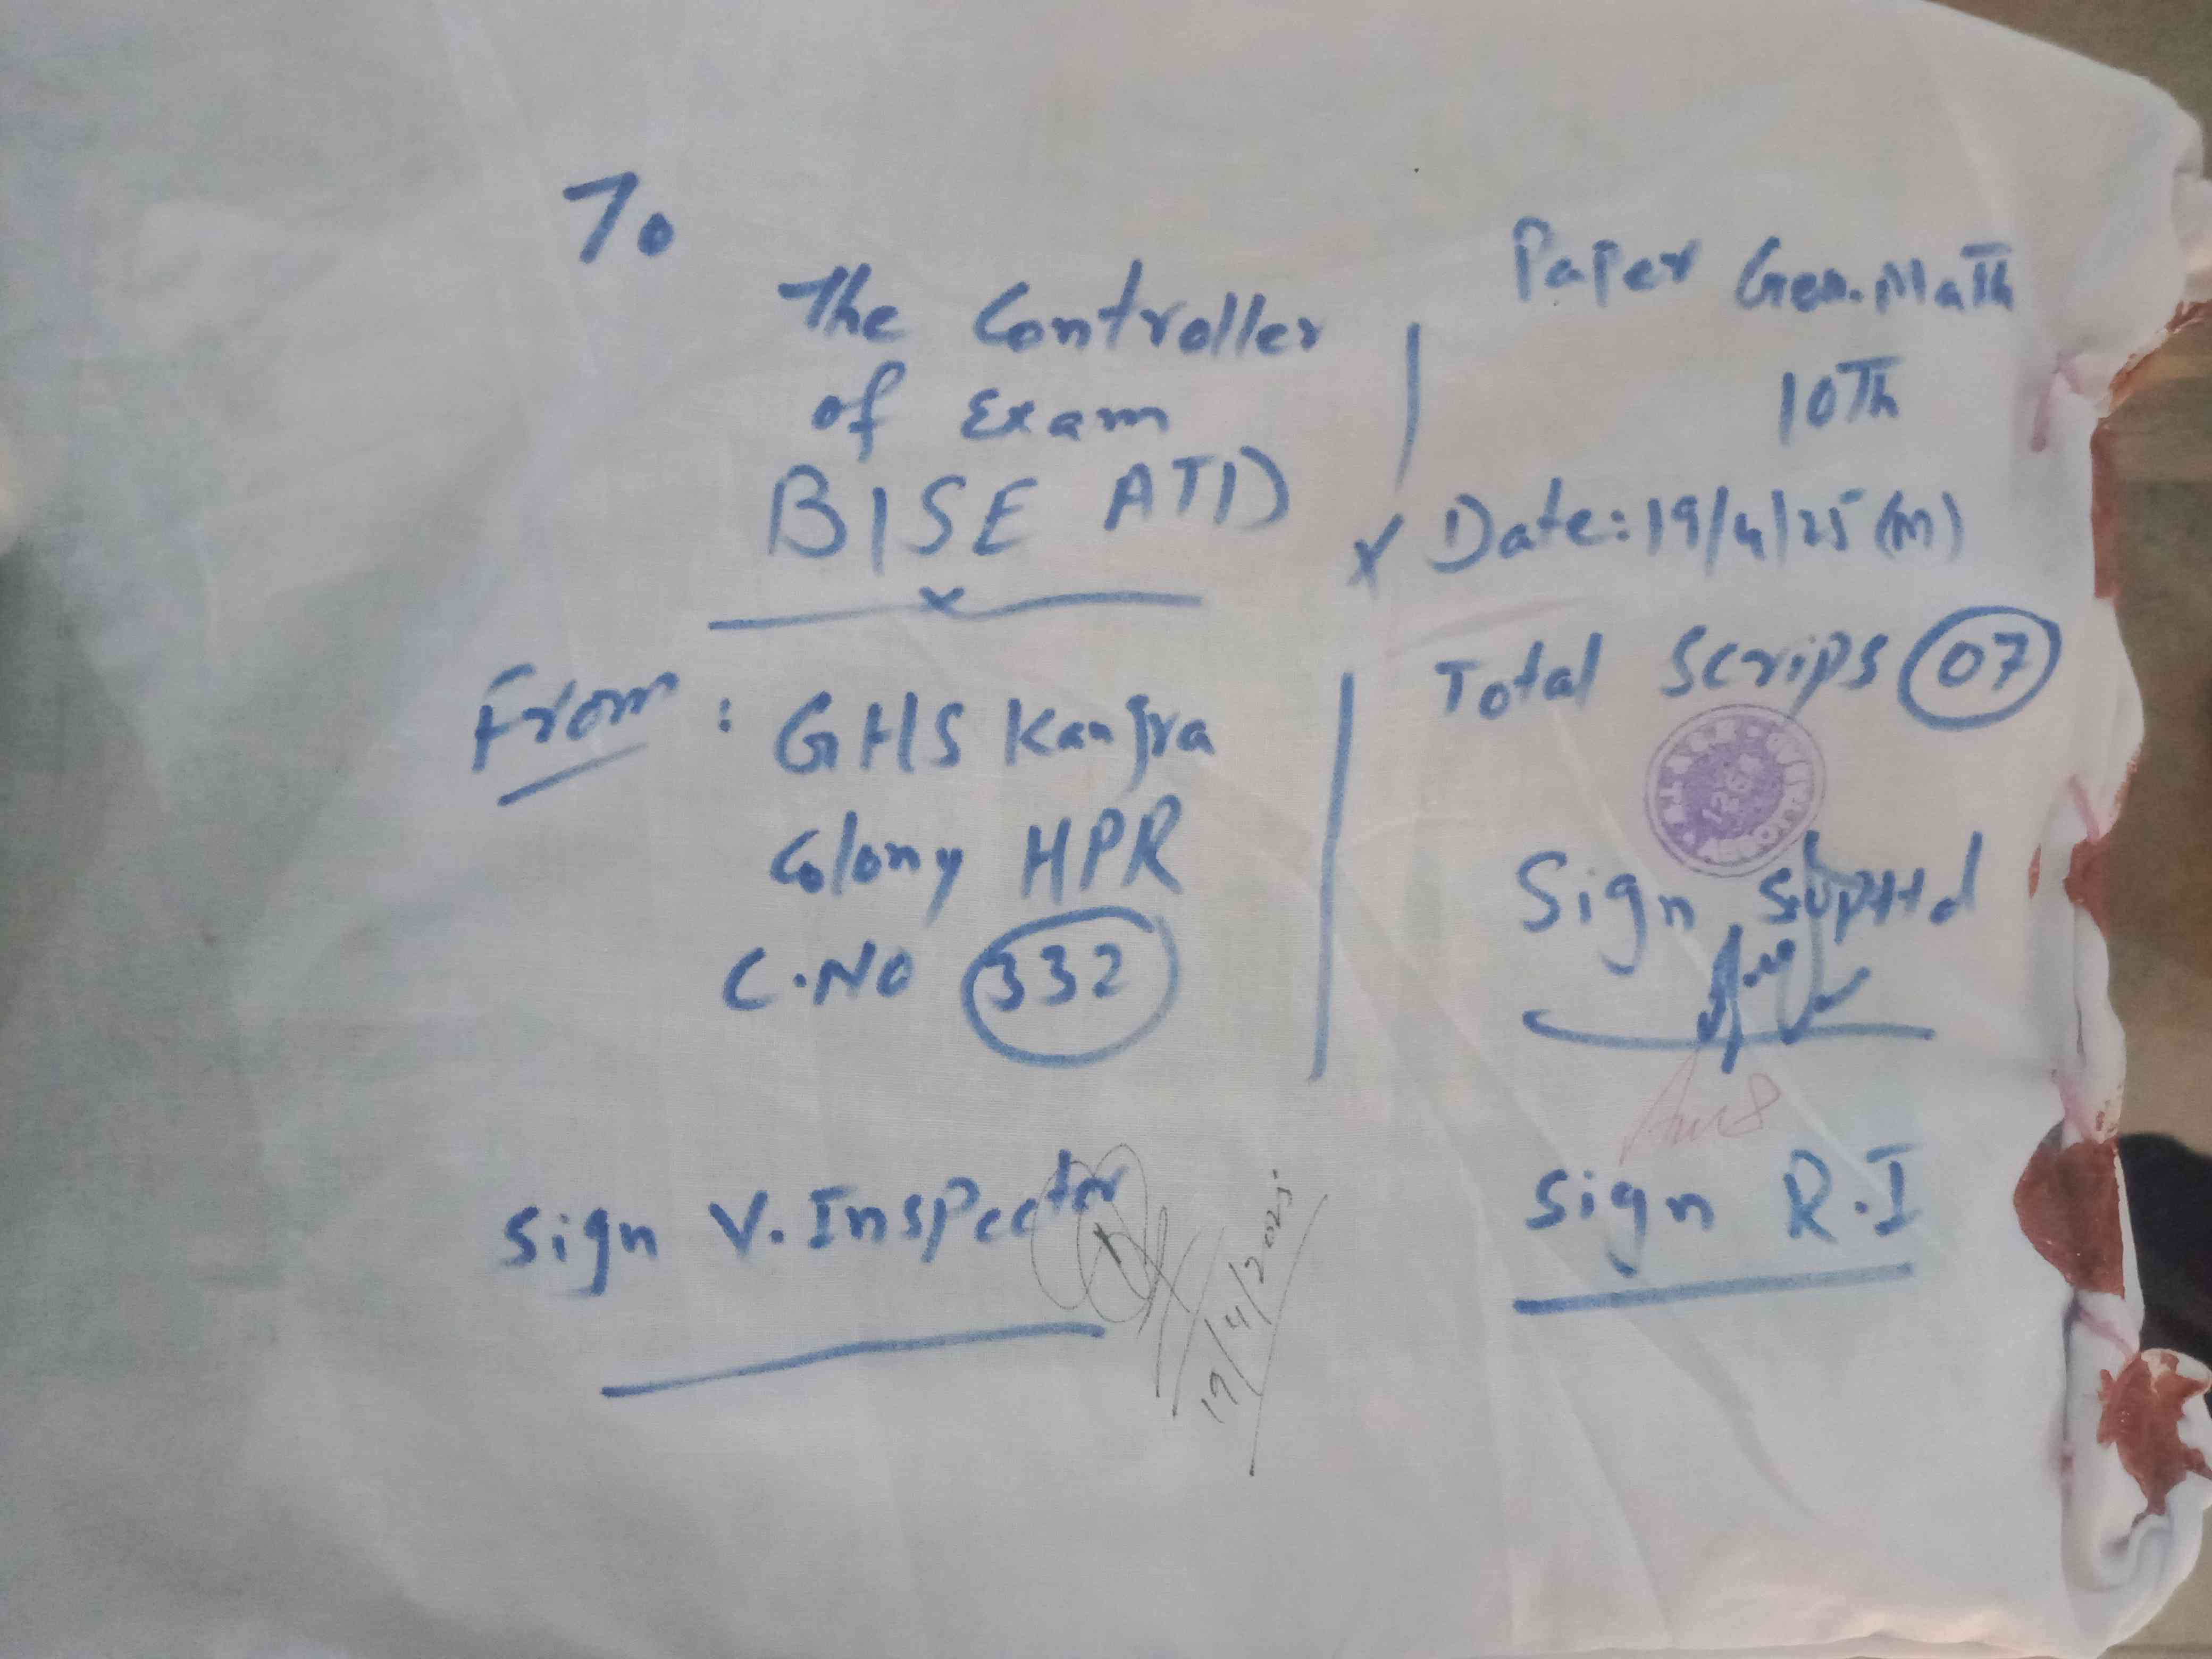 To
The Controller
of Exam
BISE ATD
From : GHS Kangra
Colony HPR
C.No 332
Sign V. Inspector
19/4/2025
Paper Gen. Math
10Th
Date: 19/4/25 (M)
Total Scrips 07
Sign Suptt d
Sign R.I